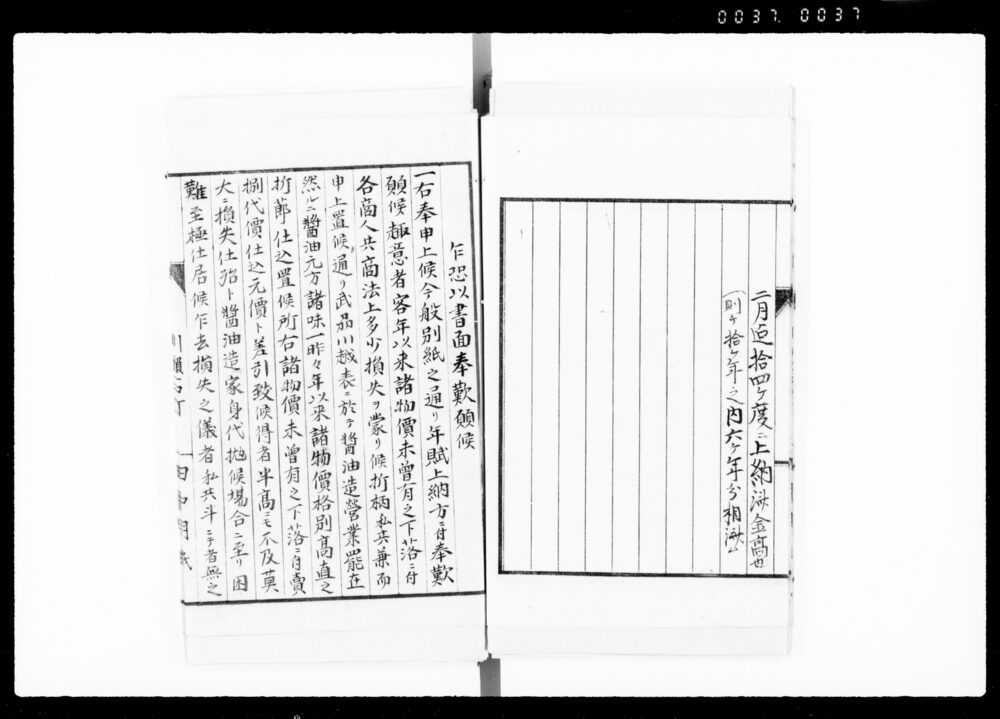 0037. 0037
二月迠拾四ケ度ニ上納済金高也
(則チ拾ケ年之内六ケ年分相済ム
乍恐以書面奉歎願候
一右奉申上候今般別紙之通リ年賦上納方ニ付奉歎
願候趣意者客年以来諸物價未曾有之下落ニ付
各商人共商法上多少損失ヲ蒙リ候折柄私共兼而
申上置候通リ武州川越表ニ於テ醬油造營業罷在
然ルニ醬油元方諸味一昨々年以来諸物價格別高直之
折節仕込置候所右諸物價未曾有之下落ニ付賣
捌代價仕込元價ト差引致候得者半高ニモ不及莫
大ニ損失仕殆ト醬油造家身代抛候場合ニ至リ困
難至極仕居候乍去損失之儀者私共斗ニテ者無之